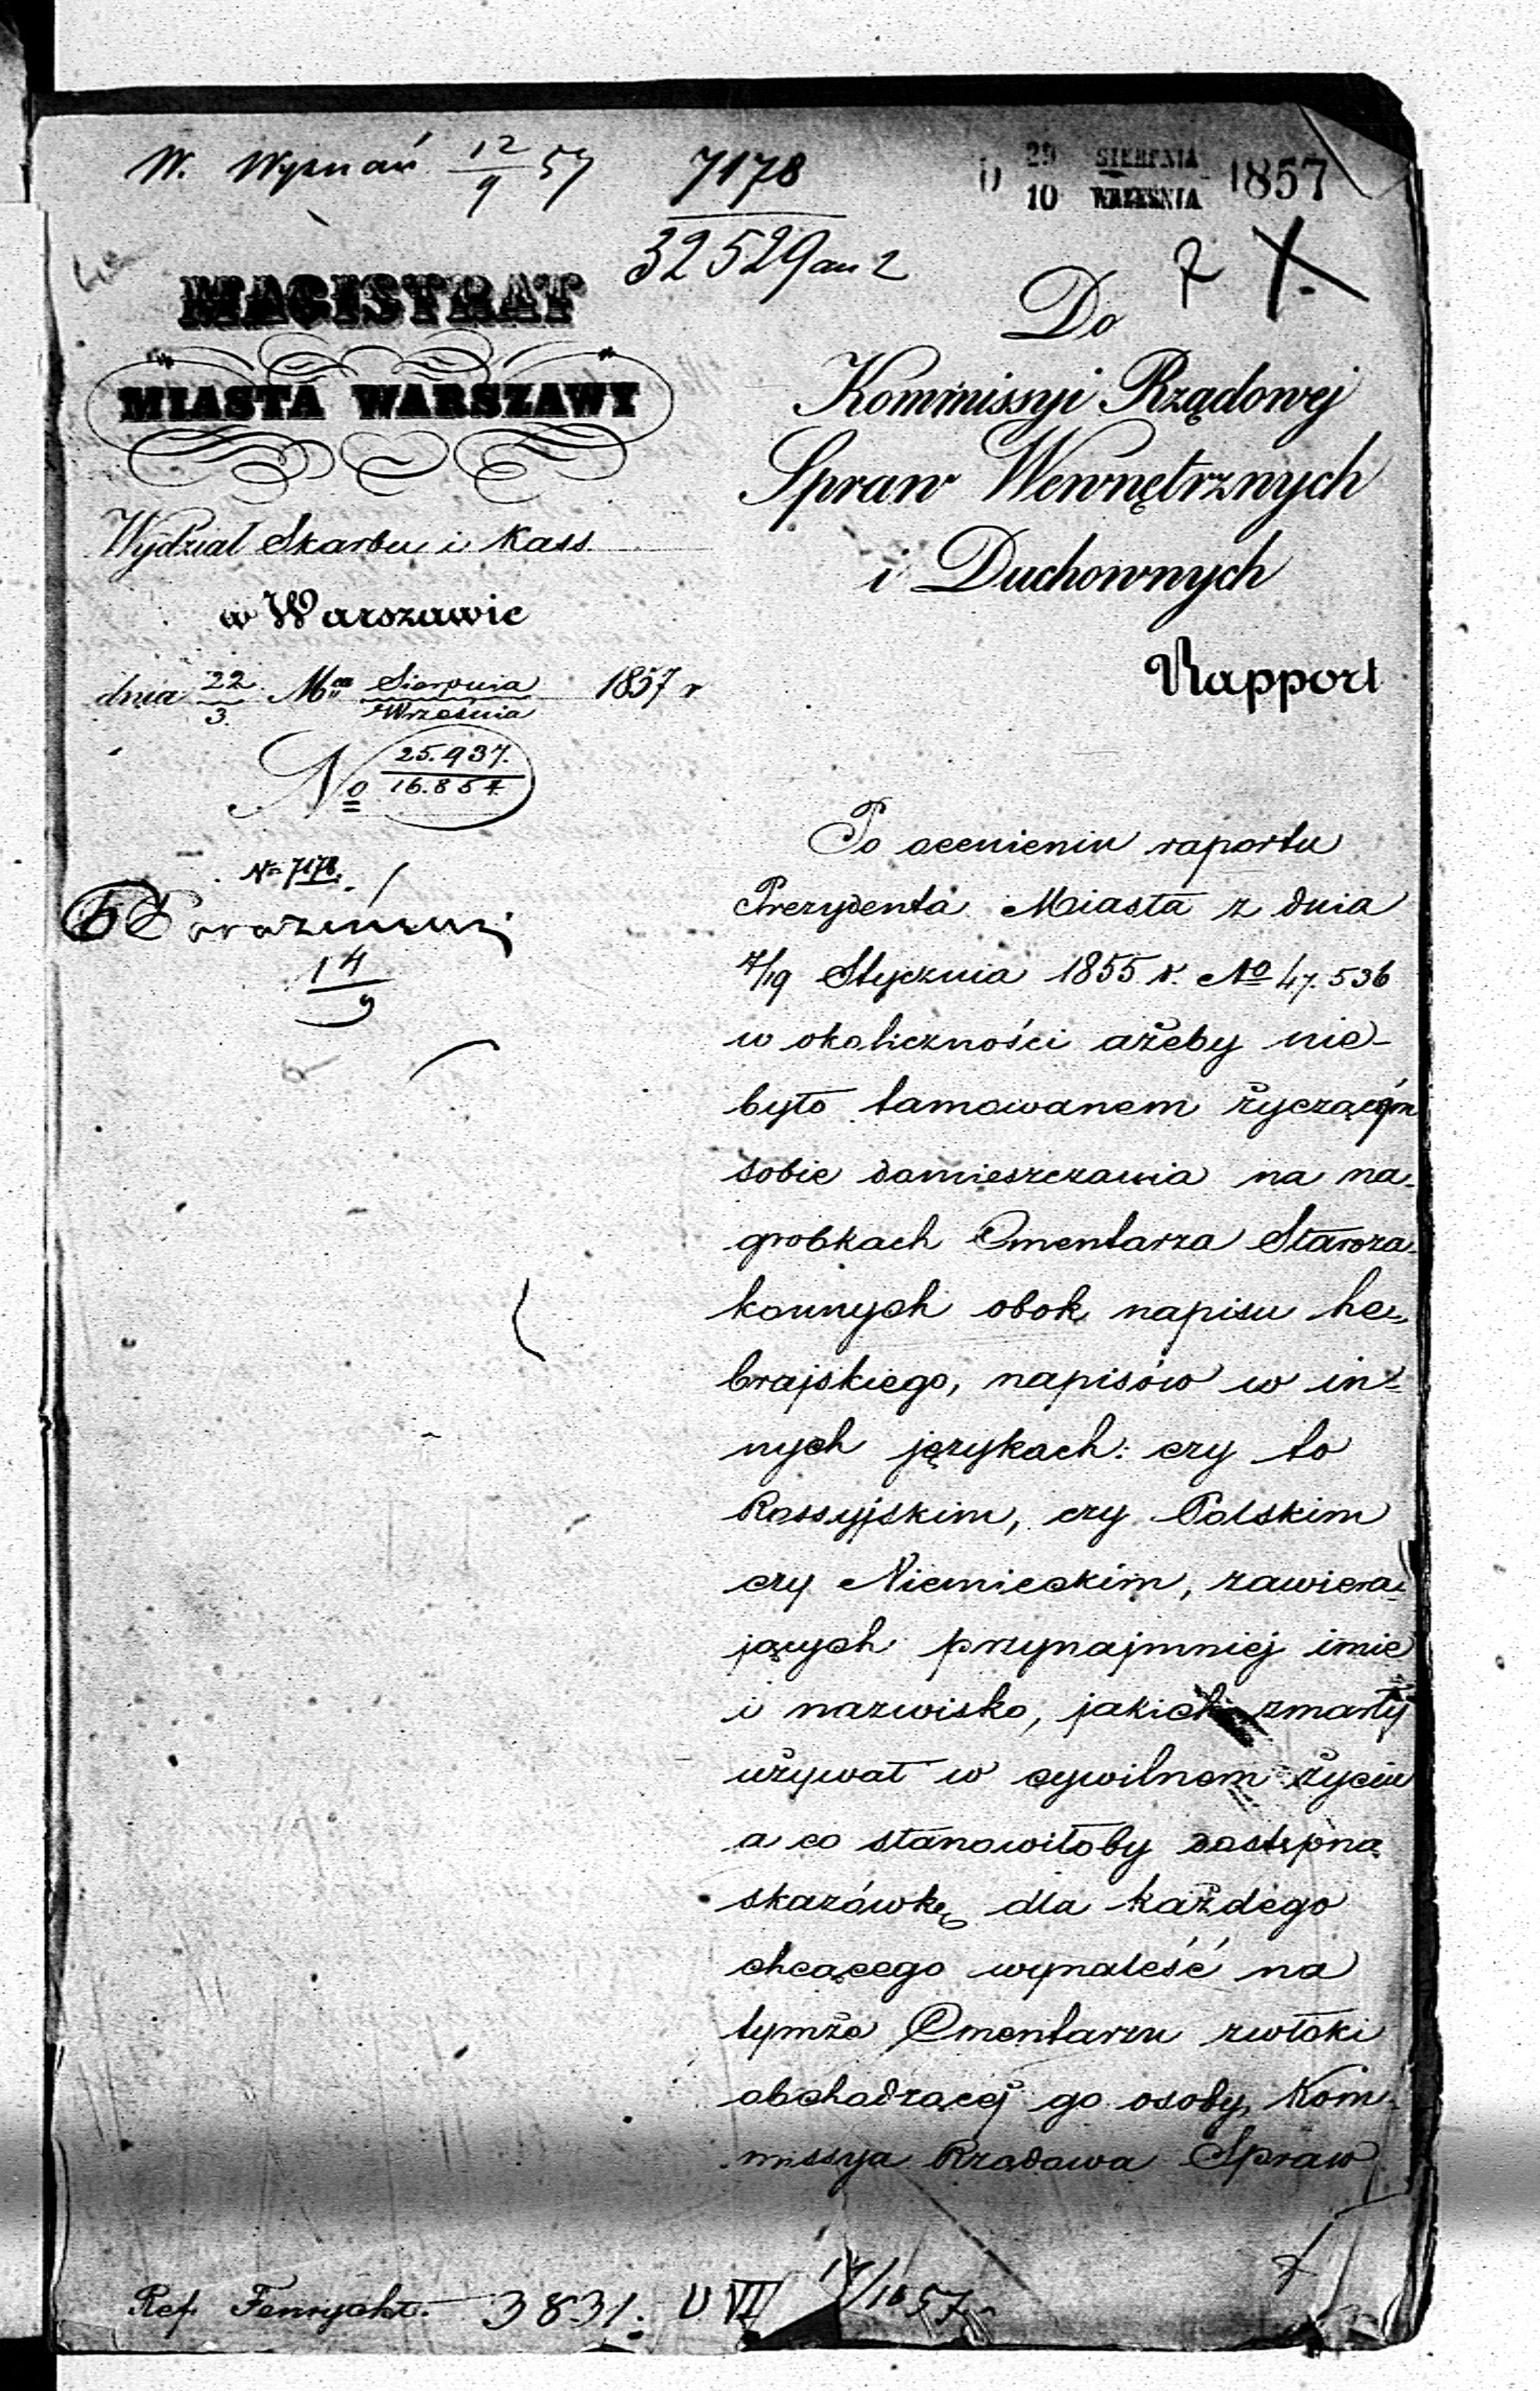 W. Wyznań 12/9 57
7178
32529 au 2
D 29 SIERPNIA 1857
10 WRZEŚNIA
MAGISTRAT
MIASTA WARSZAWY
Wydział Skarbu i Kass
w Warszawie
dnia 22/3 Mca Sierpnia/Września 1857 r
No 25.937./16.854.
No 7178.
14/9
Do
Kommissyi Rządowej
Spraw Wewnętrznych
i Duchownych
Rapport
Po ocenieniu raportu
Prezydenta Miasta z dnia
7/19 Stycznia 1855 r. No 47.536
w okoliczności ażeby nie-
było tamowanem życzącym
sobie domieszczania na na-
grobkach Cmentarza Staroza-
konnych obok napisu he-
brajskiego, napisów w in-
nych językach: czy to
Rossyjskim, czy Polskim
czy Niemieckim, zawiera-
jących przynajmniej imie
i nazwisko, jakich zmarły
używał w cywilnem życiu
a co stanowiłoby dostępną
skazówkę dla każdego
chcącego wynaleść na
tymże Cmentarzu zwłoki
obchodzącej go osoby, Kom-
missya Rządowa Spraw
Ref. 3831. U VII 57